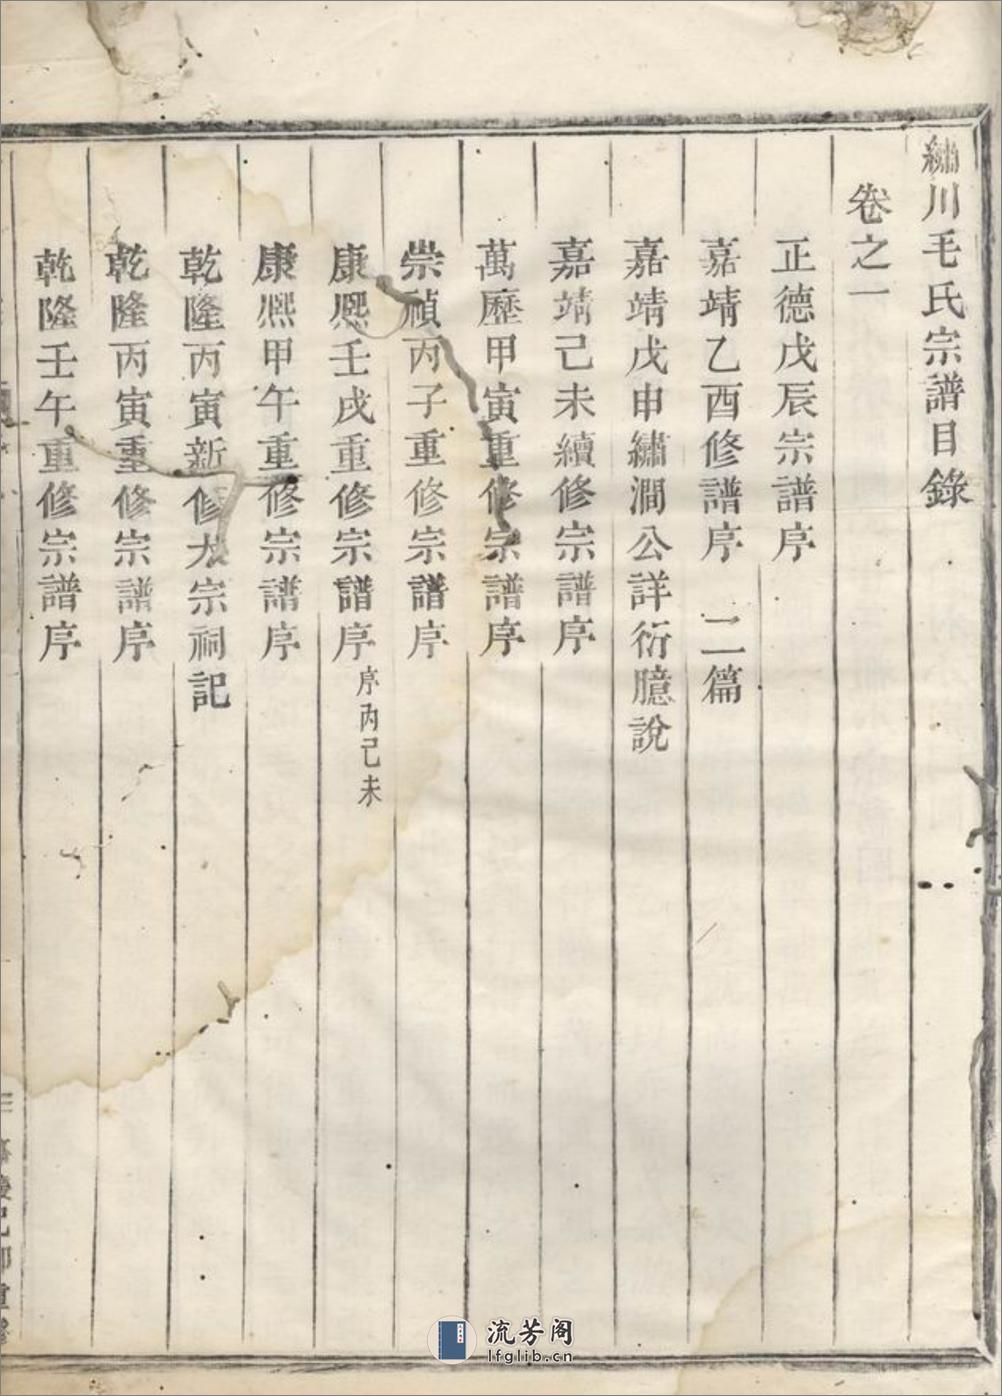 繡川毛氏宗譜目錄
卷之一
正德戊辰宗譜序
嘉靖乙酉修譜序　二篇
嘉靖戊申繡澗公詳衍臆說
嘉靖己未續修宗譜序
萬歷甲寅重修宗譜序
崇禎丙子重修宗譜序
康熙壬戌重修宗譜序 序內己未
康熙甲午重修宗譜序
乾隆丙寅新修大宗祠記
乾隆丙寅重修宗譜序
乾隆壬午重修宗譜序
流芳阁
lfglib.cn